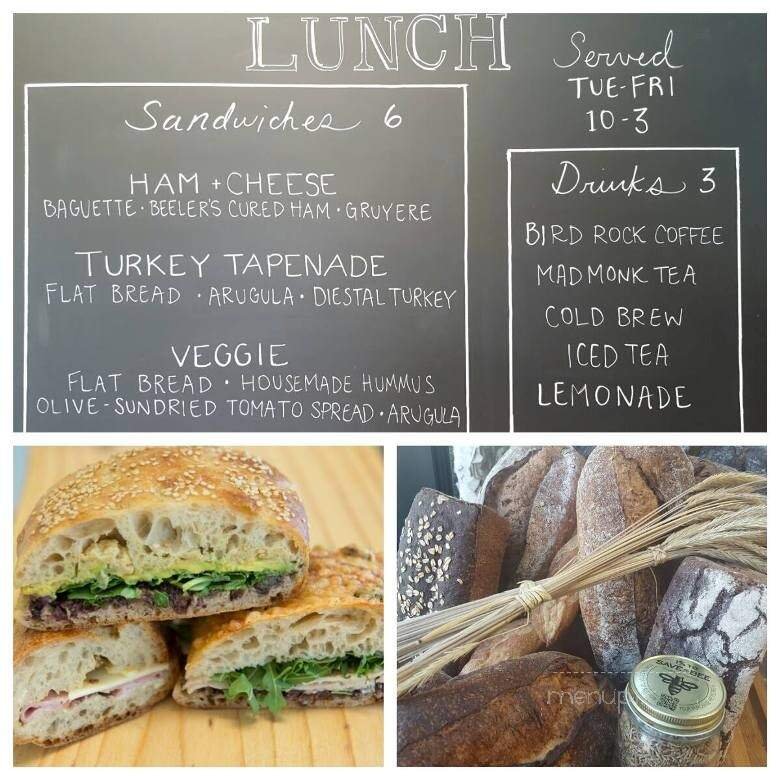 LUNCH
Served
TUE-FRI
10-3
Sandwiches 6
HAM + CHEESE
BAGUETTE · BEELER'S CURED HAM · GRUYERE
TURKEY TAPENADE
FLAT BREAD · ARUGULA · DIESTAL TURKEY
VEGGIE
FLAT BREAD · HOUSEMADE HUMMUS
OLIVE-SUNDRIED TOMATO SPREAD · ARUGULA
Drinks 3
BIRD ROCK COFFEE
MAD MONK TEA
COLD BREW
ICED TEA
LEMONADE
SAVE BEE